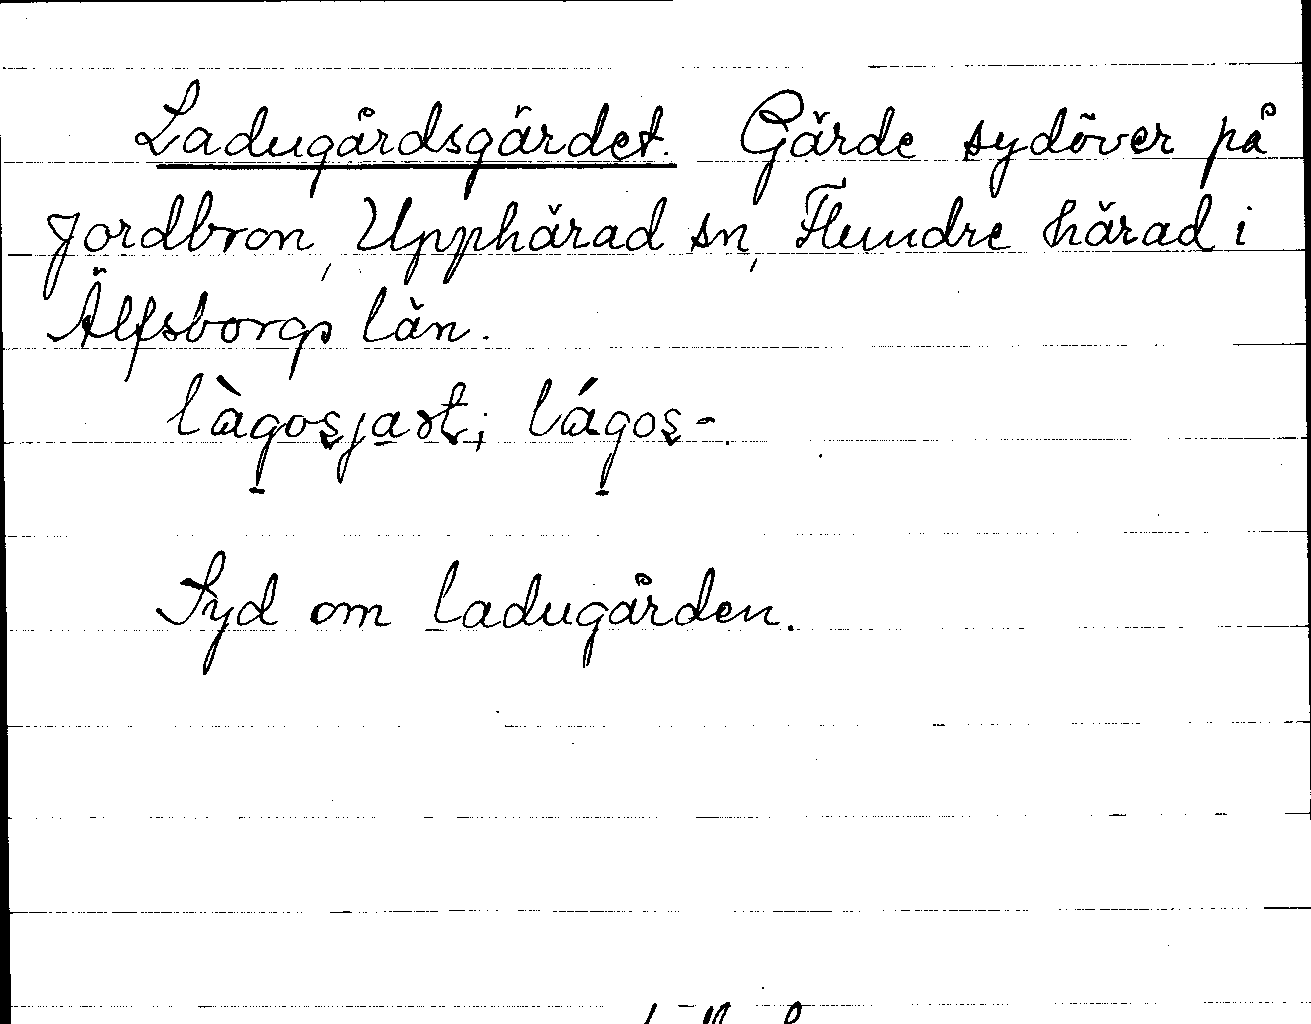 Ladugårdsgärdet. Gärde sydöver på
Jordbron, Upphärad sn, Flundre härad i
Älfsborgs län.
làgosjart; lágos-.
Syd om ladugården.